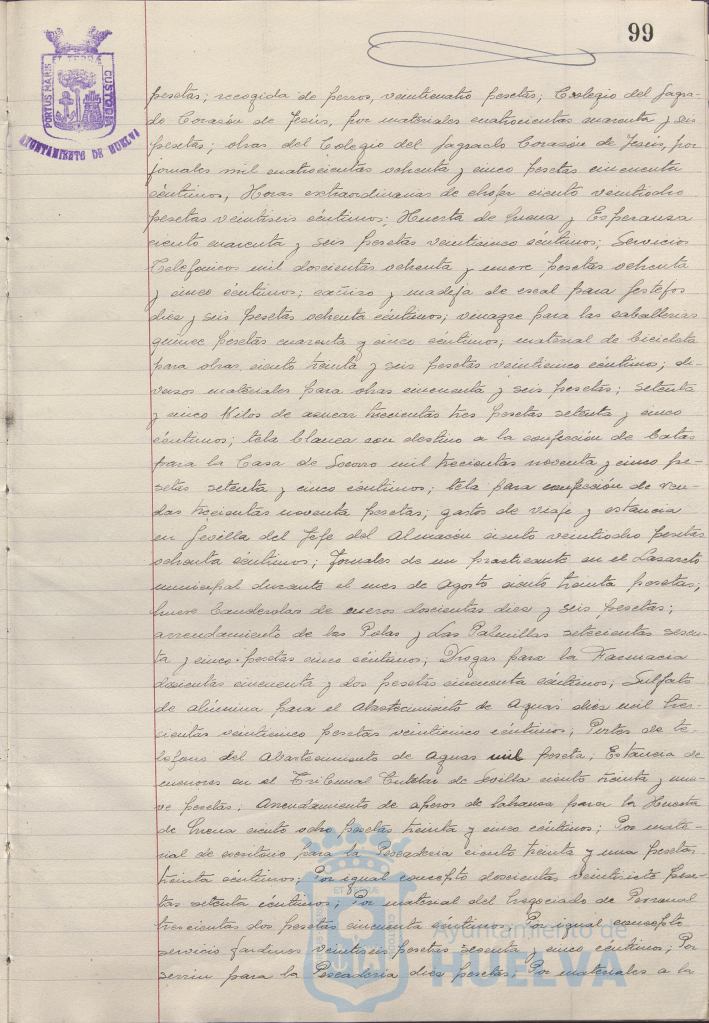 99
PORTUS MARIS ET TERRÆ CUSTODIA
AYUNTAMIENTO DE HUELVA
pesetas; recogida de perros, veinticuatro pesetas; Colegio del Sagra-
do Corazón de Jesús, por materiales cuatrocientas cuarenta y seis
pesetas; obras del Colegio del Sagrado Corazón de Jesús, por
jornales mil cuatrocientas ochenta y cinco pesetas cincuenta
céntimos, Horas extraordinarias de chofer ciento veintiocho
pesetas veintiseis céntimos; Huerta de Mena y Esperanza
ciento cuarenta y seis pesetas veinticinco céntimos; Servicios
Telefónicos mil doscientas ochenta y nueve pesetas ochenta
y cinco céntimos; cañizo y madeja de escal para festejos
diez y seis pesetas ochenta céntimos; vinagre para las caballerias
quince pesetas cuarenta y cinco céntimos; material de bicicleta
para obras ciento treinta y seis pesetas veinticinco céntimos; di-
versos materiales para obras cincuenta y seis pesetas; setenta
y cinco Kilos de azucar trecientas tres pesetas setenta y cinco
céntimos; tela blanca con destino a la confección de batas
para la Casa de Socorro mil trecientas noventa y cinco pe-
setas setenta y cinco céntimos; tela para confección de ven-
das trecientas noventa pesetas; gastos de viaje y estancia
en Sevilla del Jefe del Almacén ciento veintiocho pesetas
ochenta céntimos; Jornales de un practicante en el Lazareto
municipal durante el mes de Agosto ciento treinta pesetas;
nueve banderolas de cueros doscientas diez y seis pesetas;
arrendamiento de las Polas y Las Palmillas setecientas sesen-
ta y cinco pesetas cinco céntimos; Drogas para la Farmacia
doscientas cincuenta y dos pesetas cincuenta céntimos; Sulfato
de alúmina para el Abastecimiento de Aguas diez mil tres-
cientas veinticinco pesetas veinticinco céntimos; Portes de te-
léfono del Abastecimiento de Aguas mil peseta; Estancia de
menores en el Tribunal Tutelar de Sevilla ciento treinta y nue-
ve pesetas; Arrendamiento de aperos de labranza para la Huerta
de Mena ciento ocho pesetas treinta y cinco céntimos; Por mate-
rial de escritorio para la Pescaderia ciento treinta y una pesetas
treinta céntimos; Por igual concepto doscientas veintisiete pese-
tas setenta céntimos; Por material del Negociado de Personal
trescientas dos pesetas cincuenta céntimos; Por igual concepto
servicio Jardines veintiseis pesetas sesenta y cinco céntimos; Por
serrin para la Pescaderia diez pesetas; Por materiales a la
Ayuntamiento de
HUELVA